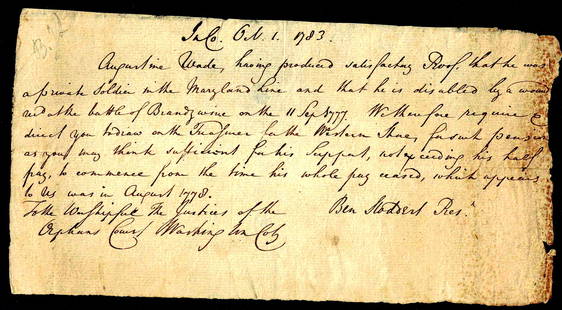 In Co. Oct. 1. 1783.
Augustine Wade, having produced satisfactory Proof that he was
a private Soldier in the Maryland Line and that he is disabled by a wound
rec'd at the battle of Brandywine on the 11 Sep 1777. We therefore require &
direct you to draw on the Treasurer for the Western Shore, for such pension
as you may think sufficient for his Support, not exceeding his half
pay, to commence from the time his whole pay ceased, which appears
to Us was in August 1778.
To the Worshipful The Justices of the
Ben Stoddert Pres.t
Orphans Court Washington Coty